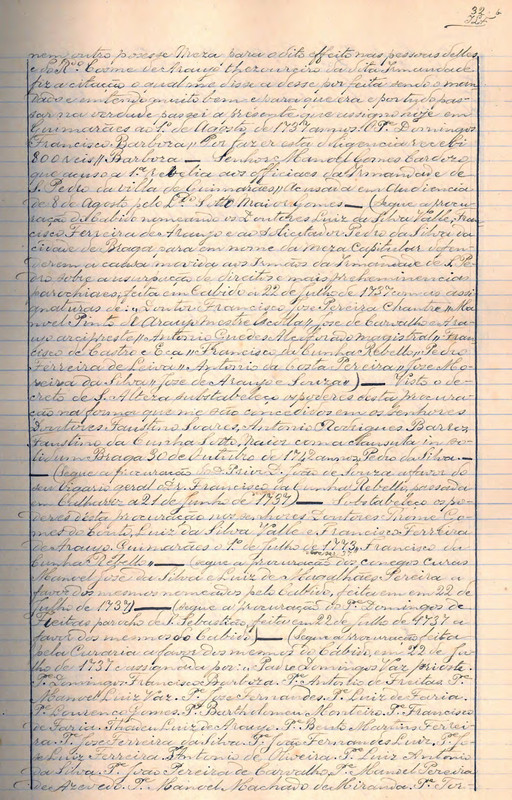 32
nem outro posesse Meza para o dito effeito nas pessoas delles
e do R.do Cosme de Araujo thezoureiro da dita Irmandade
fiz a citação o qual me disse a desse por feita sendo o men
tado e entendo muito bem e para que ora e por tudo pas
sar na verdade passei a presente que assigno hoje em
Guimarães ao 1º de Agosto de 1737 annos. O P.e Domingos
Francisco Barbora,, Por fazer esta deligencia recebi
800 reis,, Barbora — Senhor Manoel Gomes Cardozo
que accuso a 1ª revelia aos officiaes da Irmandade de
S. Pedro da Villa de Guimarães,, Acusada em Audiencia
de 8 de Agosto pelo Souto Maior Gomes — (Segue a procu
ração do Cabido nomeando os Doutores Luiz da Silva Valle, Fran
cisco Ferreira de Araujo e ao Solicitador Pedro da Silva da
cidade de Braga para em nome da Meza Capitular defen
derem a causa movida aos Irmãos da Irmandade de S. Pe
dro sobre a usurpação de direitos e mais prehiminencias
parochiaes, feita em Cabido em 22 de Julho de 1737 com as assi
gnaturas de:,, Doutor Francisco Joze Pereira Chantre,, Ma
noel Pinto de Araujo mestre escolla,, Joze de Carvalho e Ara
ujo arcipreste,, Antonio Guedes Alcoforado magistral,, Fran
cisco de Castro e Eça,, Francisco da Cunha Rebello,, Pedro
Ferreira de Leiva,, Antonio da Costa Pereira,, Joze Mo
reira da Silva,, Joze de Araujo e Souza,,) — Visto o de
creto de S. Alteza substabeleço os poderes desta procura
ção na forma que me são concedidos em os Senhores
Doutores Faustino Soares, Antonio Rodrigues Barros,
Faustino da Cunha Sotto Maior com a clausula in so
lidum Braga 30 de Outubro de 1742 annos, Pedro da Silva.—
— (Segue a procuração do D. Prior D. João de Souza a favor do
seu vigario geral o Dr. Francisco da Cunha Rebello, passada
em Culhares a 21 de Junho de 1737) — Substabeleço os po
deres desta procuração nos senhores Doutores Thomé Go
mes do Couto, Luiz da Silva Valle e Francisco Ferreira
de Araujo. Guimarães o 1º de Julho de 1773,, Francisco da
Cunha Rebello,, — (Segue a procuração dos conegos curas
Manoel José da Silva e Luiz de Magalhães Pereira a
favor dos mesmos nomeados pelo Cabido, feita em em 22 de
Julho de 1737) — (Segue a procuração do P.e Domingos de
Freitas parocho de S. Sebastião, feita em 22 de Julho de 4737 a
favor dos mesmos do Cabido) — (Segue a procuração feita
pela Coraria a favor dos mesmos do Cabido, em 22 de Ju
lho de 1737 e assignada por:,, Padre Domingos Vaz prioste.
P.e Domingos Francisco Barboza. P.e Antonio de Freitas. P.e
Manoel Luiz Vaz. P.e Joze Fernandes. P.e Luiz de Faria.
P.e Lourenço Gomes. P.e Bartholomeu Monteiro. P.e Francisco
de Faria. Thadeu Luiz de Araujo. P.e Bento Martins Ferrei
ra. P.e Joze Ferreira da Silva. P.e João Fernandes Luiz. P.e Jo
ze Luiz Ferreira. P.e Antonio de Oliveira. P.e Luiz Antonio
da Silva. P.e João Pereira de Carvalho. P.e Manoel Pereira
de Azevedo. P.e Manoel Machado de Miranda. P.e Fer